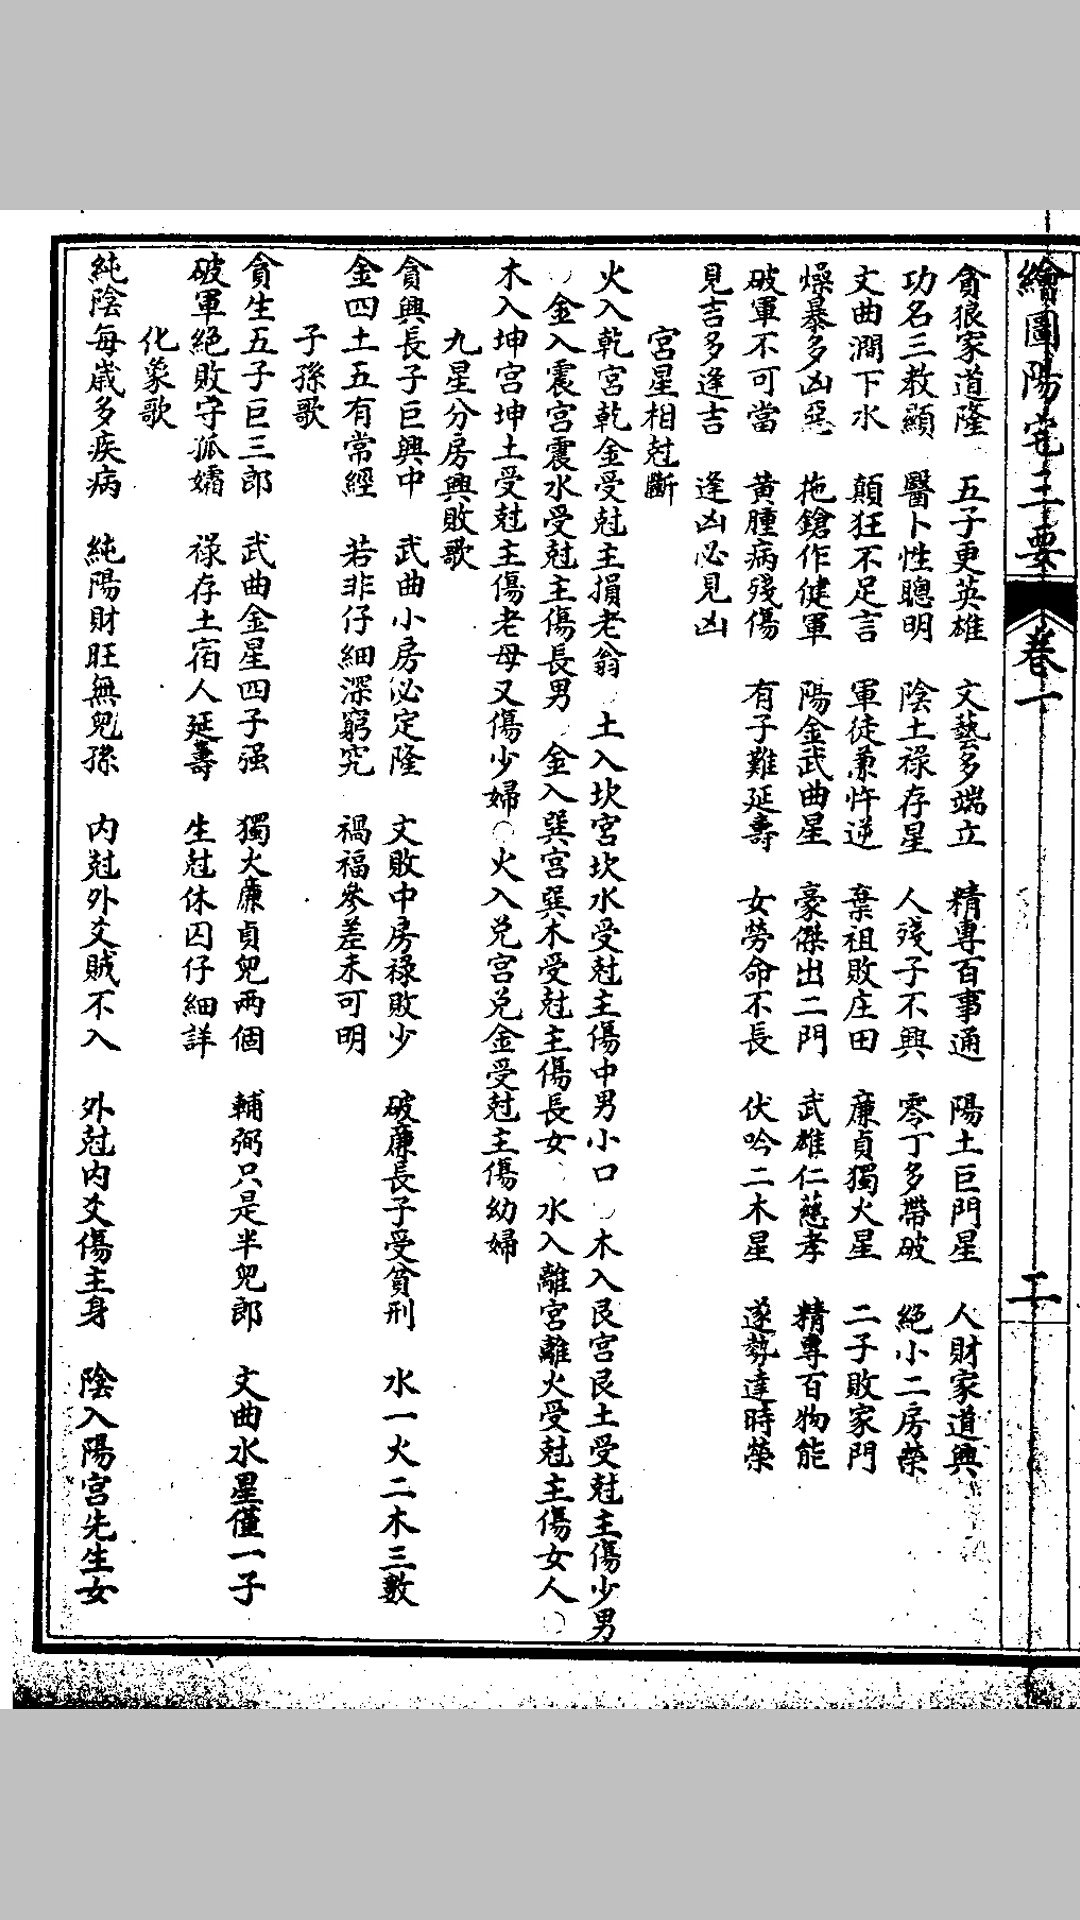 繪圖陽宅三要 卷一 二
貪狼家道隆 五子更英雄 文藝多端立 精專百事通 陽土巨門星 人財家道興
功名三教顯 醫卜性聰明 陰土祿存星 人殘子不興 零丁多帶破 絕小二房榮
文曲澗下水 顛狂不足言 軍徒兼忤逆 棄祖敗庄田 廉貞獨火星 二子敗家門
燥暴多凶惡 拖鎗作健軍 陽金武曲星 豪傑出二門 武雄仁慈孝 精專百物能
破軍不可當 黃腫病殘傷 有子難延壽 女勞命不長 伏吟二木星 遂勢達時榮
見吉多逢吉 逢凶必見凶
宮星相尅斷
火入乾宮乾金受尅主損老翁 土入坎宮坎水受尅主傷中男小口 木入艮宮艮土受尅主傷少男
金入震宮震水受尅主傷長男 金入巽宮巽木受尅主傷長女 水入離宮離火受尅主傷女人○
木入坤宮坤土受尅主傷老母又傷少婦○火入兌宮兌金受尅主傷幼婦
九星分房興敗歌
貪興長子巨興中 武曲小房必定隆 文敗中房祿敗少 破廉長子受貧刑 水一火二木三數
金四土五有常經 若非仔細深窮究 禍福參差未可明
子孫歌
貪生五子巨三郎 武曲金星四子强 獨火廉貞兒兩個 輔弼只是半兒郎 文曲水星僅一子
破軍絕敗守孤孀 祿存土宿人延壽 生尅休囚仔細詳
化象歌
純陰每歲多疾病 純陽財旺無兒孫 內尅外爻賊不入 外尅內爻傷主身 陰入陽宮先生女